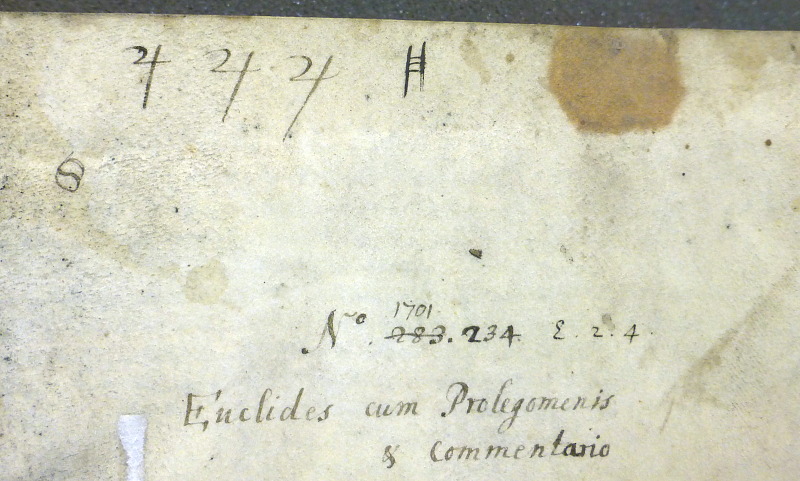 1701
Nº. 283. 234 E. 2. 4.
Euclides cum Prolegomenis
& Commentario